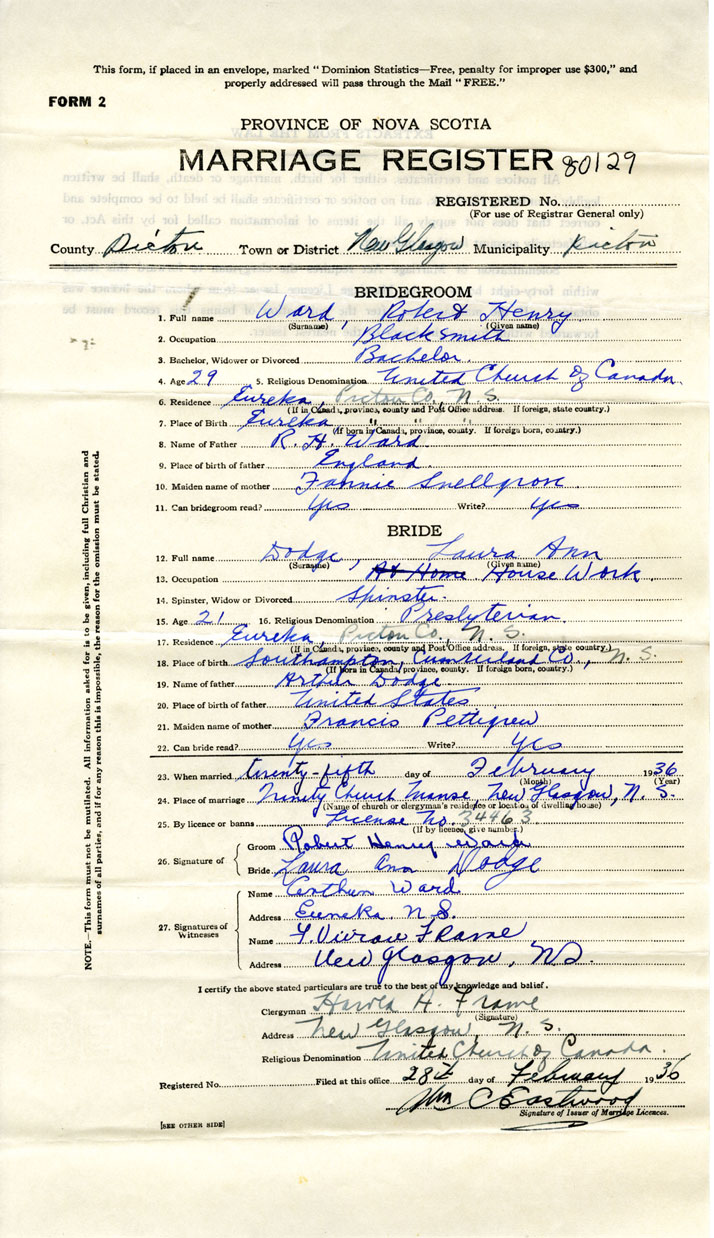 This form, if placed in an envelope, marked "Dominion Statistics—Free, penalty for improper use $300," and
properly addressed will pass through the Mail "FREE."
FORM 2
PROVINCE OF NOVA SCOTIA
MARRIAGE REGISTER 80129
REGISTERED No.
(For use of Registrar General only)
County Pictou Town or District New Glasgow Municipality Pictou
BRIDEGROOM
1. Full name Ward, Robert Henry
(Surname) (Given name)
2. Occupation Blacksmith
3. Bachelor, Widower or Divorced Bachelor.
4. Age 29 5. Religious Denomination United Church of Canada.
6. Residence Eureka, Pictou Co, N. S.
(If in Canada, province, county and Post Office address. If foreign, state country.)
7. Place of Birth Eureka " " " "
(If born in Canada, province, county. If foreign born, country.)
8. Name of Father R. H. Ward
9. Place of birth of father England
10. Maiden name of mother Fannie Snellgrove
11. Can bridegroom read? Yes Write? Yes
BRIDE
12. Full name Dodge, Laura Ann
(Surname) (Given name)
13. Occupation At Home House Work.
14. Spinster, Widow or Divorced Spinster.
15. Age 21 16. Religious Denomination Presbyterian.
17. Residence Eureka, Pictou Co, N. S.
(If in Canada, province, county and Post Office address. If foreign, state country.)
18. Place of birth Southampton, Cumberland Co, N. S.
(If born in Canada, province, county. If foreign born, country.)
19. Name of father Arthur Dodge
20. Place of birth of father United States
21. Maiden name of mother Francis Pettigrew
22. Can bride read? Yes Write? Yes
23. When married twenty-fifth day of February 1936
(Month) (Year)
24. Place of marriage Trinity Church Manse, New Glasgow, N. S.
(Name of church or clergyman's residence or location of dwelling house)
25. By licence or banns License No. 34463
(If by licence, give number.)
26. Signature of
Groom Robert Henry Ward
Bride Laura Ann Dodge
27. Signatures of Witnesses
Name Arthur Ward
Address Eureka N.S.
Name F. Vivian Frame
Address New Glasgow, N.S.
I certify the above stated particulars are true to the best of my knowledge and belief.
Clergyman Harold A. Frame
(Signature)
Address New Glasgow, N. S.
Religious Denomination United Church of Canada.
Registered No. Filed at this office 28th day of February 1936
Wm C Eastwood
Signature of Issuer of Marriage Licences.
[SEE OTHER SIDE]
NOTE.—This form must not be mutilated. All information asked for, is to be given, including full Christian and
surnames of all parties, and if for any reason this is impossible, the reason for the omission must be stated.